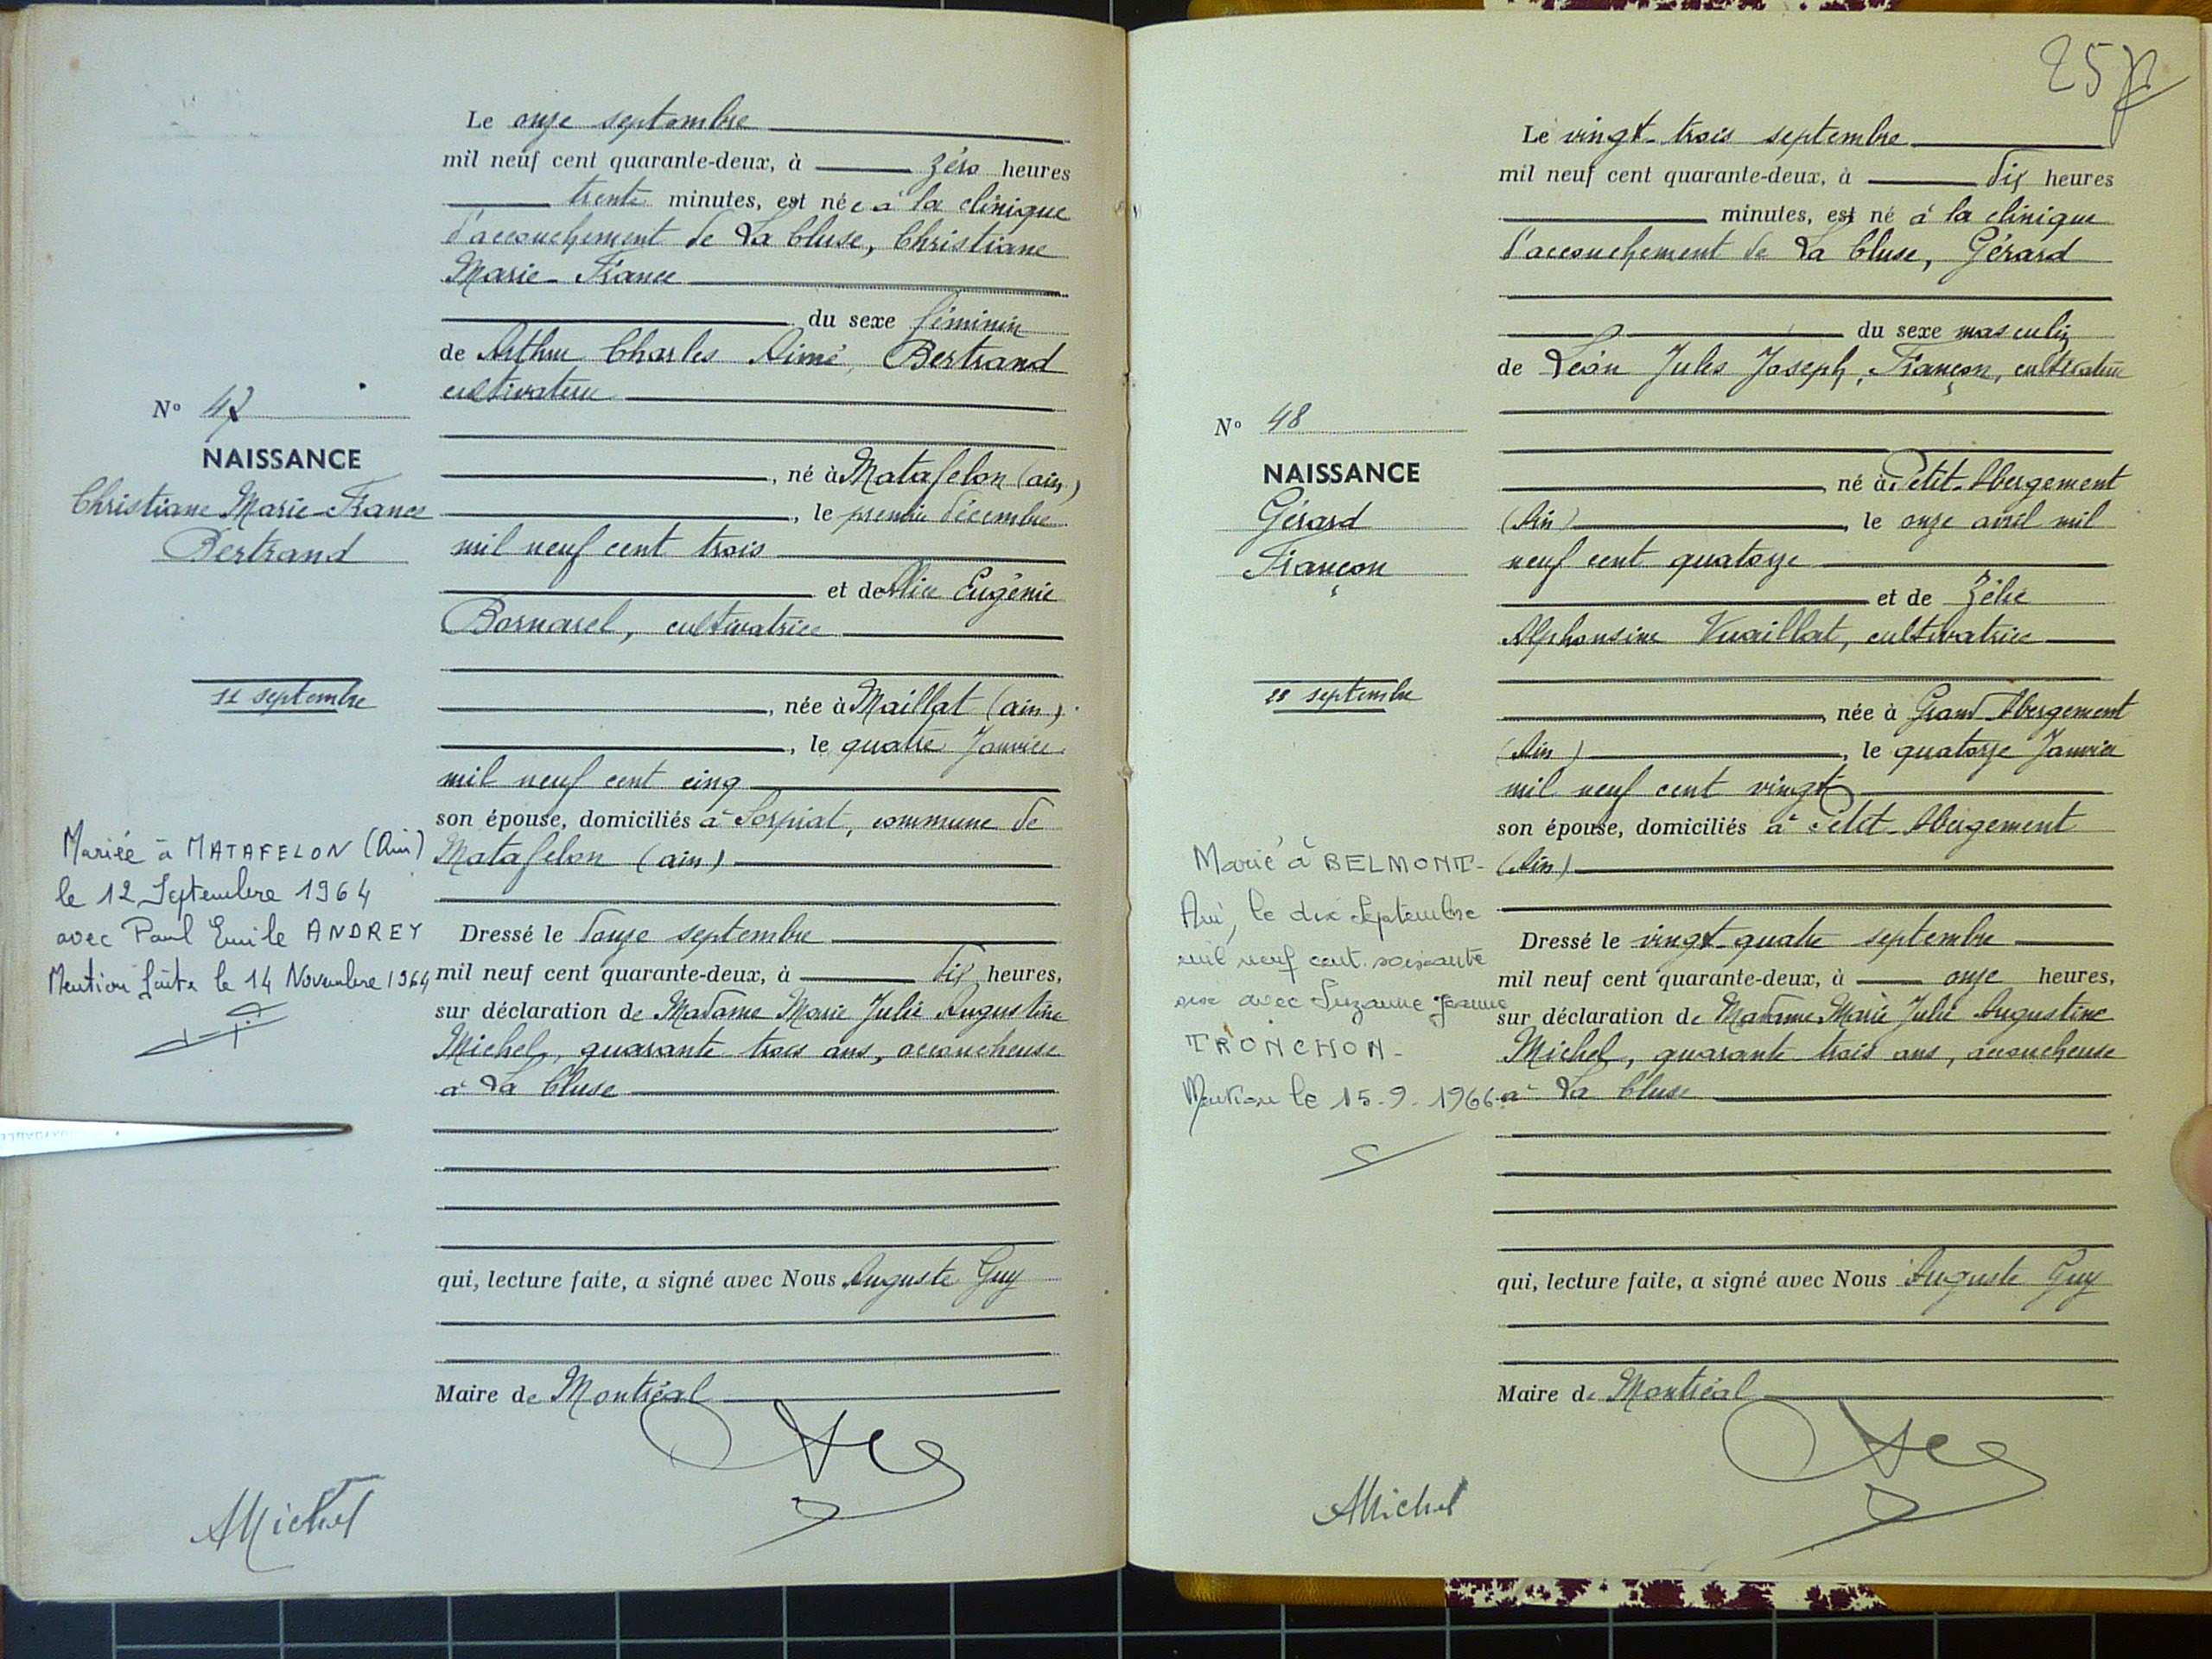 Le onze septembre
mil neuf cent quarante-deux, à zéro heures
trente minutes, est née à la clinique
d'accouchement de La Cluse, Christiane
Marie-France
du sexe féminin
de Arthur Charles Aimé, Bertrand
cultivateur
né à Matafelon (ain)
, le premier décembre
mil neuf cent trois
et de Alice Eugénie
Bornarel, cultivatrice
, née à Maillat (ain)
, le quatre Janvier
mil neuf cent cinq
son épouse, domiciliés à Corpiat, commune de
Matafelon (ain)
Dressé le douze septembre
mil neuf cent quarante-deux, à dix heures,
sur déclaration de Madame Marie Julie Augustine
Michel, quarante trois ans, accoucheuse
à La Cluse
qui, lecture faite, a signé avec Nous Auguste Guy
Maire de Montréal
AMichel
N° 47
NAISSANCE
Christiane Marie-France
Bertrand
11 septembre
Mariée à MATAFELON (Ain)
le 12 Septembre 1964
avec Paul Emile ANDREY
Mention faite le 14 Novembre 1964
25
Le vingt-trois septembre
mil neuf cent quarante-deux, à dix heures
minutes, est né à la clinique
d'accouchement de La Cluse, Gérard
du sexe masculin
de Léon Jules Joseph, Françon, cultivateur
né à Petit-Abergement
(Ain), le onze avril mil
neuf cent quatorze
et de Zélie
Alphonsine Vuaillat, cultivatrice
née à Grand-Abergement
(Ain), le quatorze Janvier
mil neuf cent vingt
son épouse, domiciliés à Petit-Abergement
(Ain)
Dressé le vingt-quatre septembre
mil neuf cent quarante-deux, à onze heures,
sur déclaration de Madame Marie Julie Augustine
Michel, quarante trois ans, accoucheuse
à La Cluse
qui, lecture faite, a signé avec Nous Auguste Guy
Maire de Montréal
AMichel
N° 48
NAISSANCE
Gérard
Françon
23 septembre
Marié à BELMONT-
Ain, le dix Septembre
mil neuf cent soixante
six avec Suzanne Jeanne
TRONCHON-
Mention le 15-9-1966.